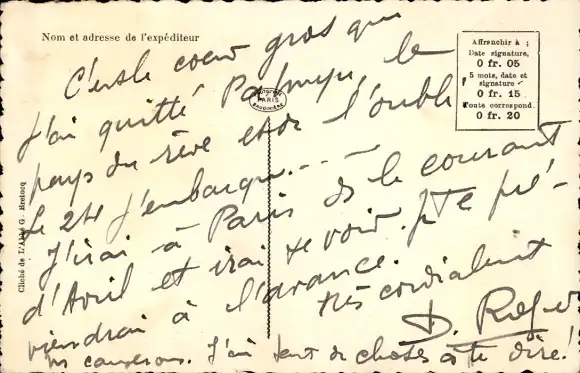 Nom et adresse de l'expéditeur
Affranchir à :
Date signature,
0 fr. 05
5 mots, date et
signature
0 fr. 15
Toute correspond.
0 fr. 20
PARIS
Cliché de L'Abbé G. Bretocq
C'est le coeur gros que
j'ai quitté Palmyre, le
pays du rêve et de l'oubli
Le 24 j'embarque...
J'irai à Paris ds le courant
d'Avril et irai te voir. Je te pré-
viendrai à l'avance.
très cordialement
D. Roger
ns causerons. J'ai tant de choses à te dire!